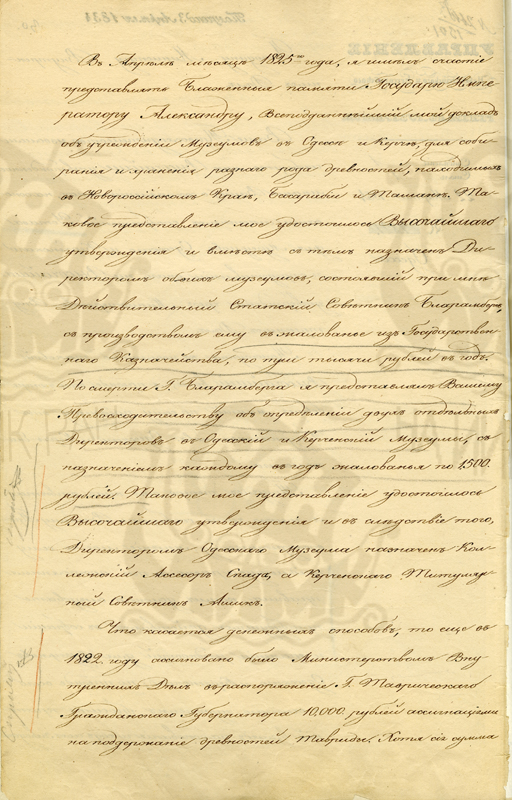 Въ Апрѣлѣ мѣсяцѣ 1825го года, я имѣлъ счастіе
представлять Блаженныя памяти Государю Импе-
ратору Александру, Всеподданнѣйшій мой докладъ
объ учрежденіи Музеумовъ въ Одессѣ и Керчѣ, для соби-
ранія и храненія разнаго рода древностей, находимыхъ
въ Новороссійскомъ Краѣ, Бассарабіи и Тамани. Та-
ковое представленіе мое удостоилось Высочайшаго
утвержденія и вмѣстѣ съ тѣмъ назначенъ Ди-
ректоромъ обоихъ музеумовъ, состоявшій при мнѣ
Дѣйствительный Статскій Совѣтникъ Бларамбергъ,
съ производствомъ ему въ жалованье изъ Государствен-
наго Казначейства, по три тысячи рублей въ годъ.
По смерти Г. Бларамберга я представлялъ Вашему
Превосходительству объ опредѣленіи двухъ отдѣльныхъ
Директоровъ въ Одесскій и Керченскій Музеумы, съ
назначеніемъ каждому въ годъ жалованья по 1500.
рублей. Таковое мое представленіе удостоилось
Высочайшаго утвержденія и въ слѣдствіе того,
Директоромъ Одесскаго Музеума назначенъ Кол-
лежскій Ассесоръ Спада, а Керченскаго Титуляр-
ный Совѣтникъ Ашикъ.
Что касается денежныхъ способовъ, то еще въ
1822. году ассигновано было Министерствомъ Вну-
треннихъ Дѣлъ въ распоряженіе Г. Таврическаго
Гражданскаго Губернатора 10,000. рублей ассигнаціями
на поддержаніе древностей Тавриды. Хотя сія сумма